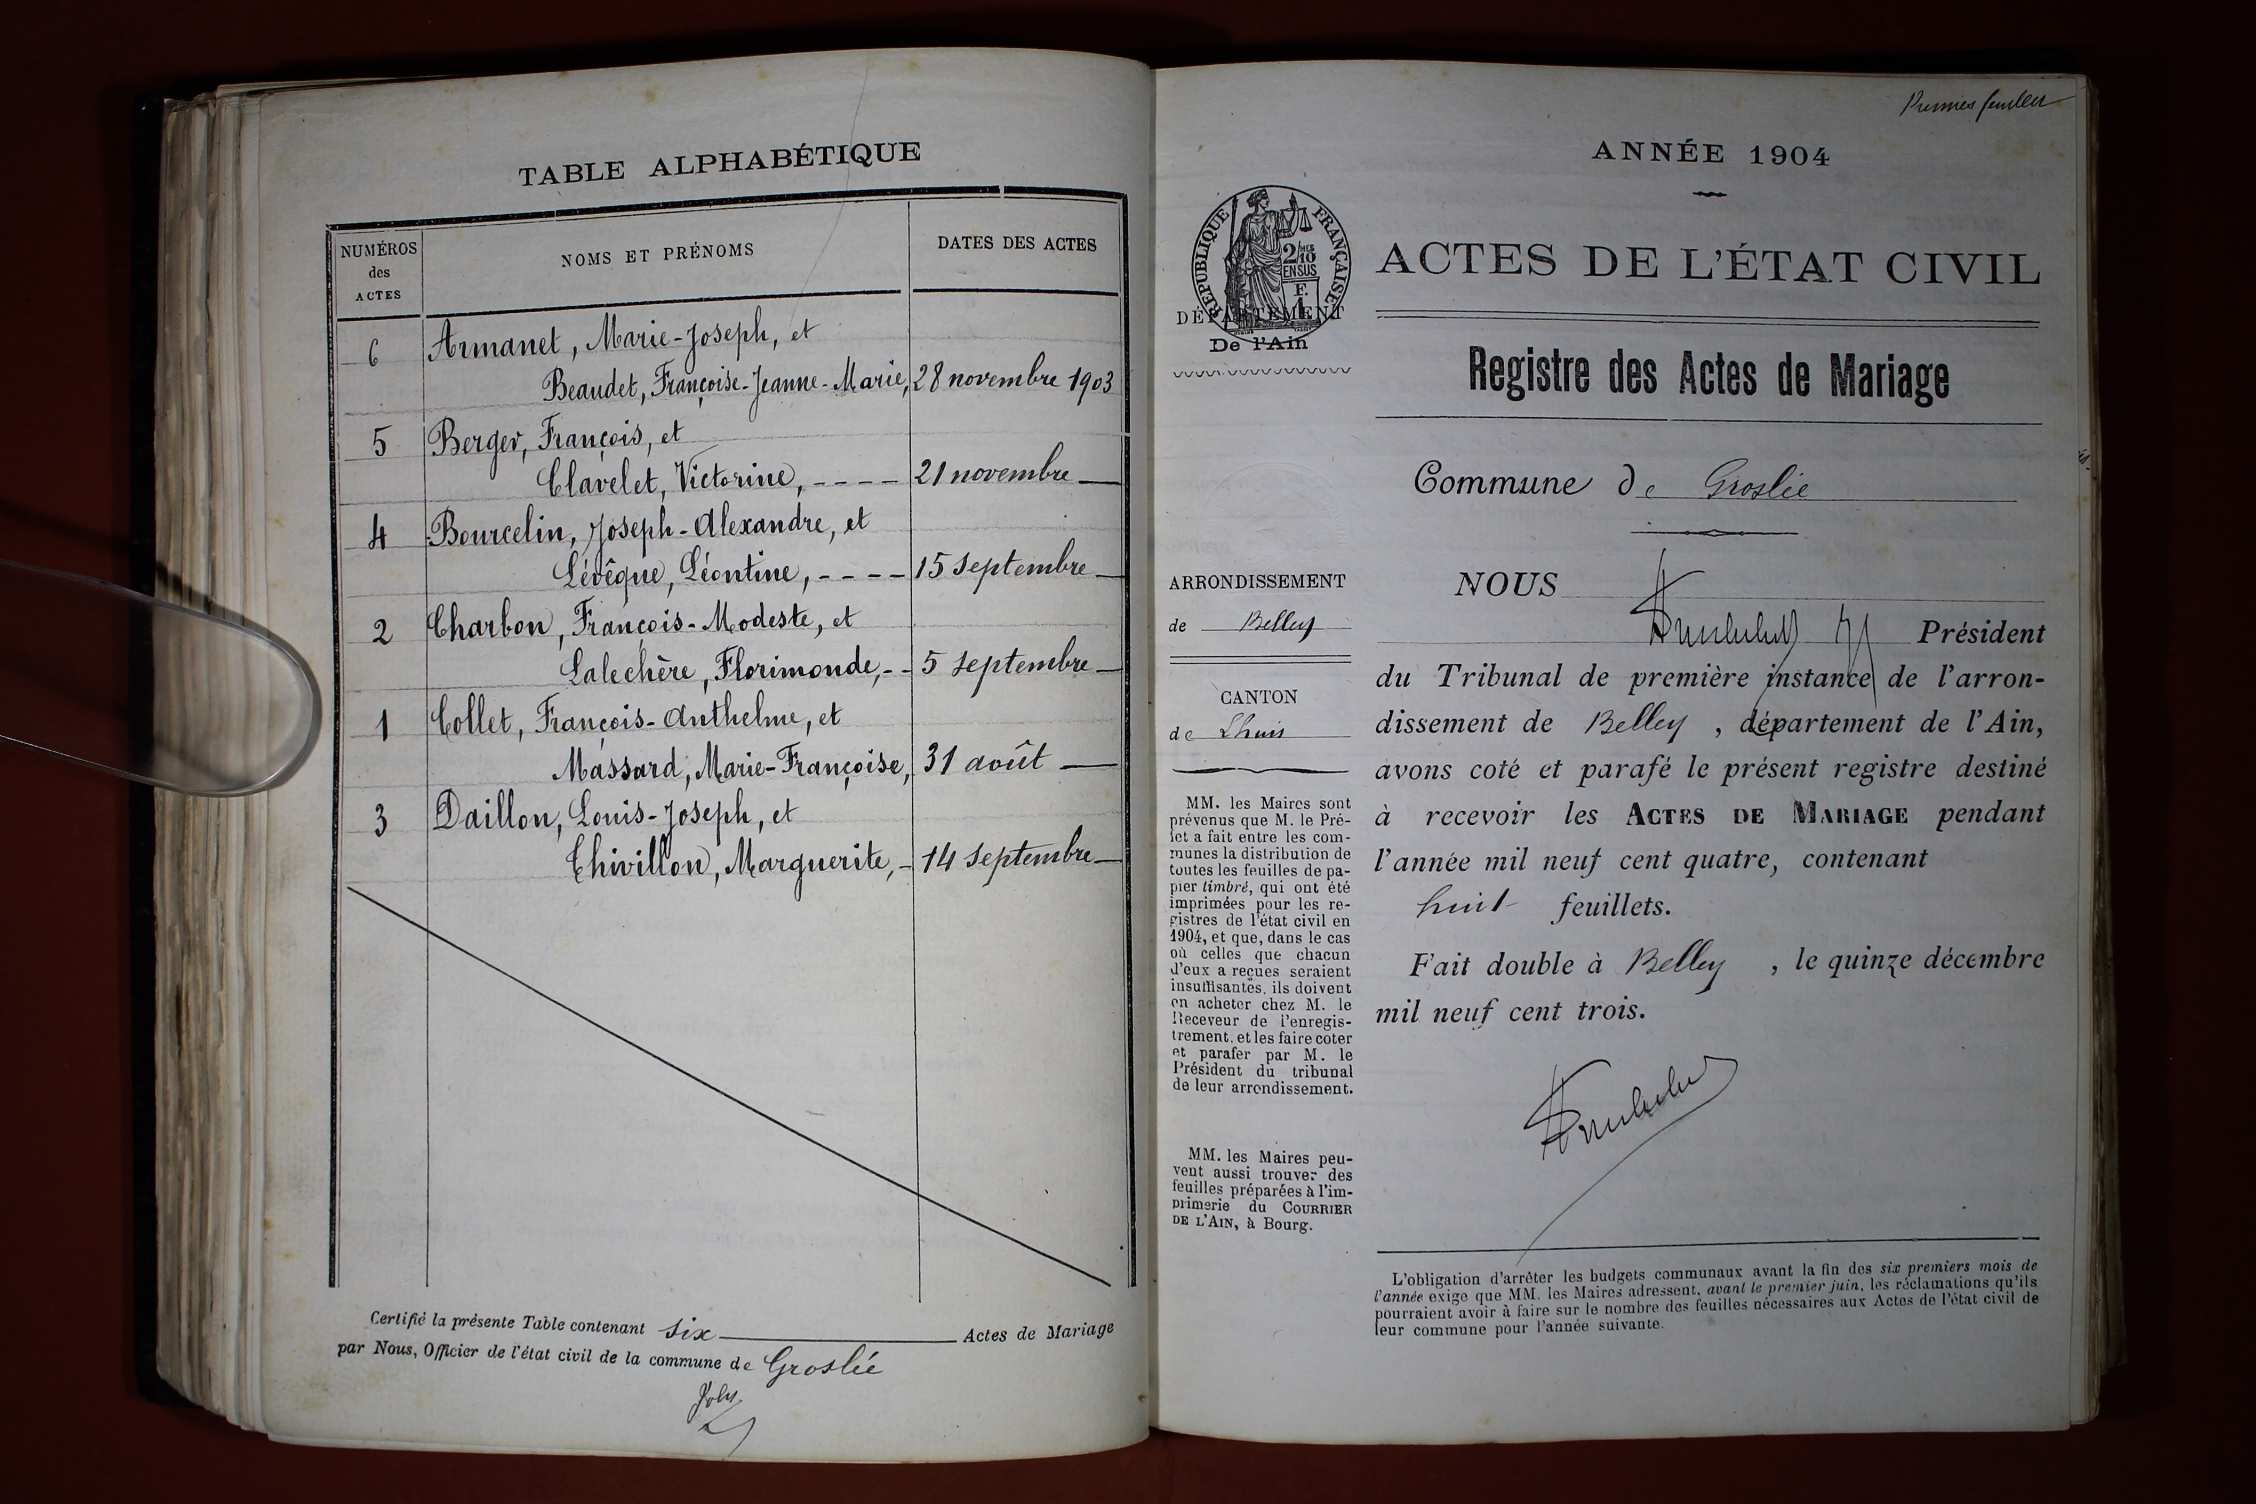 TABLE ALPHABÉTIQUE
NUMÉROS
des
ACTES
NOMS ET PRÉNOMS
DATES DES ACTES
6 Armanet, Marie-Joseph, et
Beaudet, Françoise-Jeanne-Marie, 28 novembre 1903
5 Berger, François, et
Clavelet, Victorine, - - - - 21 novembre
4 Bourcelin, Joseph-Alexandre, et
Lévêque, Léontine, - - - - 15 septembre
2 Charbon, François-Modeste, et
Lalechère, Florimonde, - - 5 septembre
1 Collet, François-Anthelme, et
Massard, Marie-Françoise, 31 août
3 Daillon, Louis-Joseph, et
Chivillon, Marguerite, - 14 septembre
Certifié la présente Table contenant six Actes de Mariage
par Nous, Officier de l'état civil de la commune de Groslée
Joly
Premier feuillet
ANNÉE 1904
RÉPUBLIQUE FRANÇAISE
2/10
EN SUS
F.
1
DÉPARTEMENT
De l'Ain
ACTES DE L'ÉTAT CIVIL
Registre des Actes de Mariage
Commune de Groslée
ARRONDISSEMENT
de Belley
CANTON
de Lhuis
MM. les Maires sont
prévenus que M. le Pré-
fet a fait entre les com-
munes la distribution de
toutes les feuilles de pa-
pier timbré, qui ont été
imprimées pour les re-
gistres de l'état civil en
1904, et que, dans le cas
où celles que chacun
d'eux a reçues seraient
insuffisantes, ils doivent
en acheter chez M. le
Receveur de l'enregis-
trement, et les faire coter
et parafer par M. le
Président du tribunal
de leur arrondissement.
MM. les Maires peu-
vent aussi trouver des
feuilles préparées à l'im-
primerie du COURRIER
DE L'AIN, à Bourg.
NOUS
Président
du Tribunal de première instance de l'arron-
dissement de Belley, département de l'Ain,
avons coté et parafé le présent registre destiné
à recevoir les ACTES DE MARIAGE pendant
l'année mil neuf cent quatre, contenant
huit feuillets.
Fait double à Belley, le quinze décembre
mil neuf cent trois.
L'obligation d'arrêter les budgets communaux avant la fin des six premiers mois de
l'année exige que MM. les Maires adressent, avant le premier juin, les réclamations qu'ils
pourraient avoir à faire sur le nombre des feuilles nécessaires aux Actes de l'état civil de
leur commune pour l'année suivante.